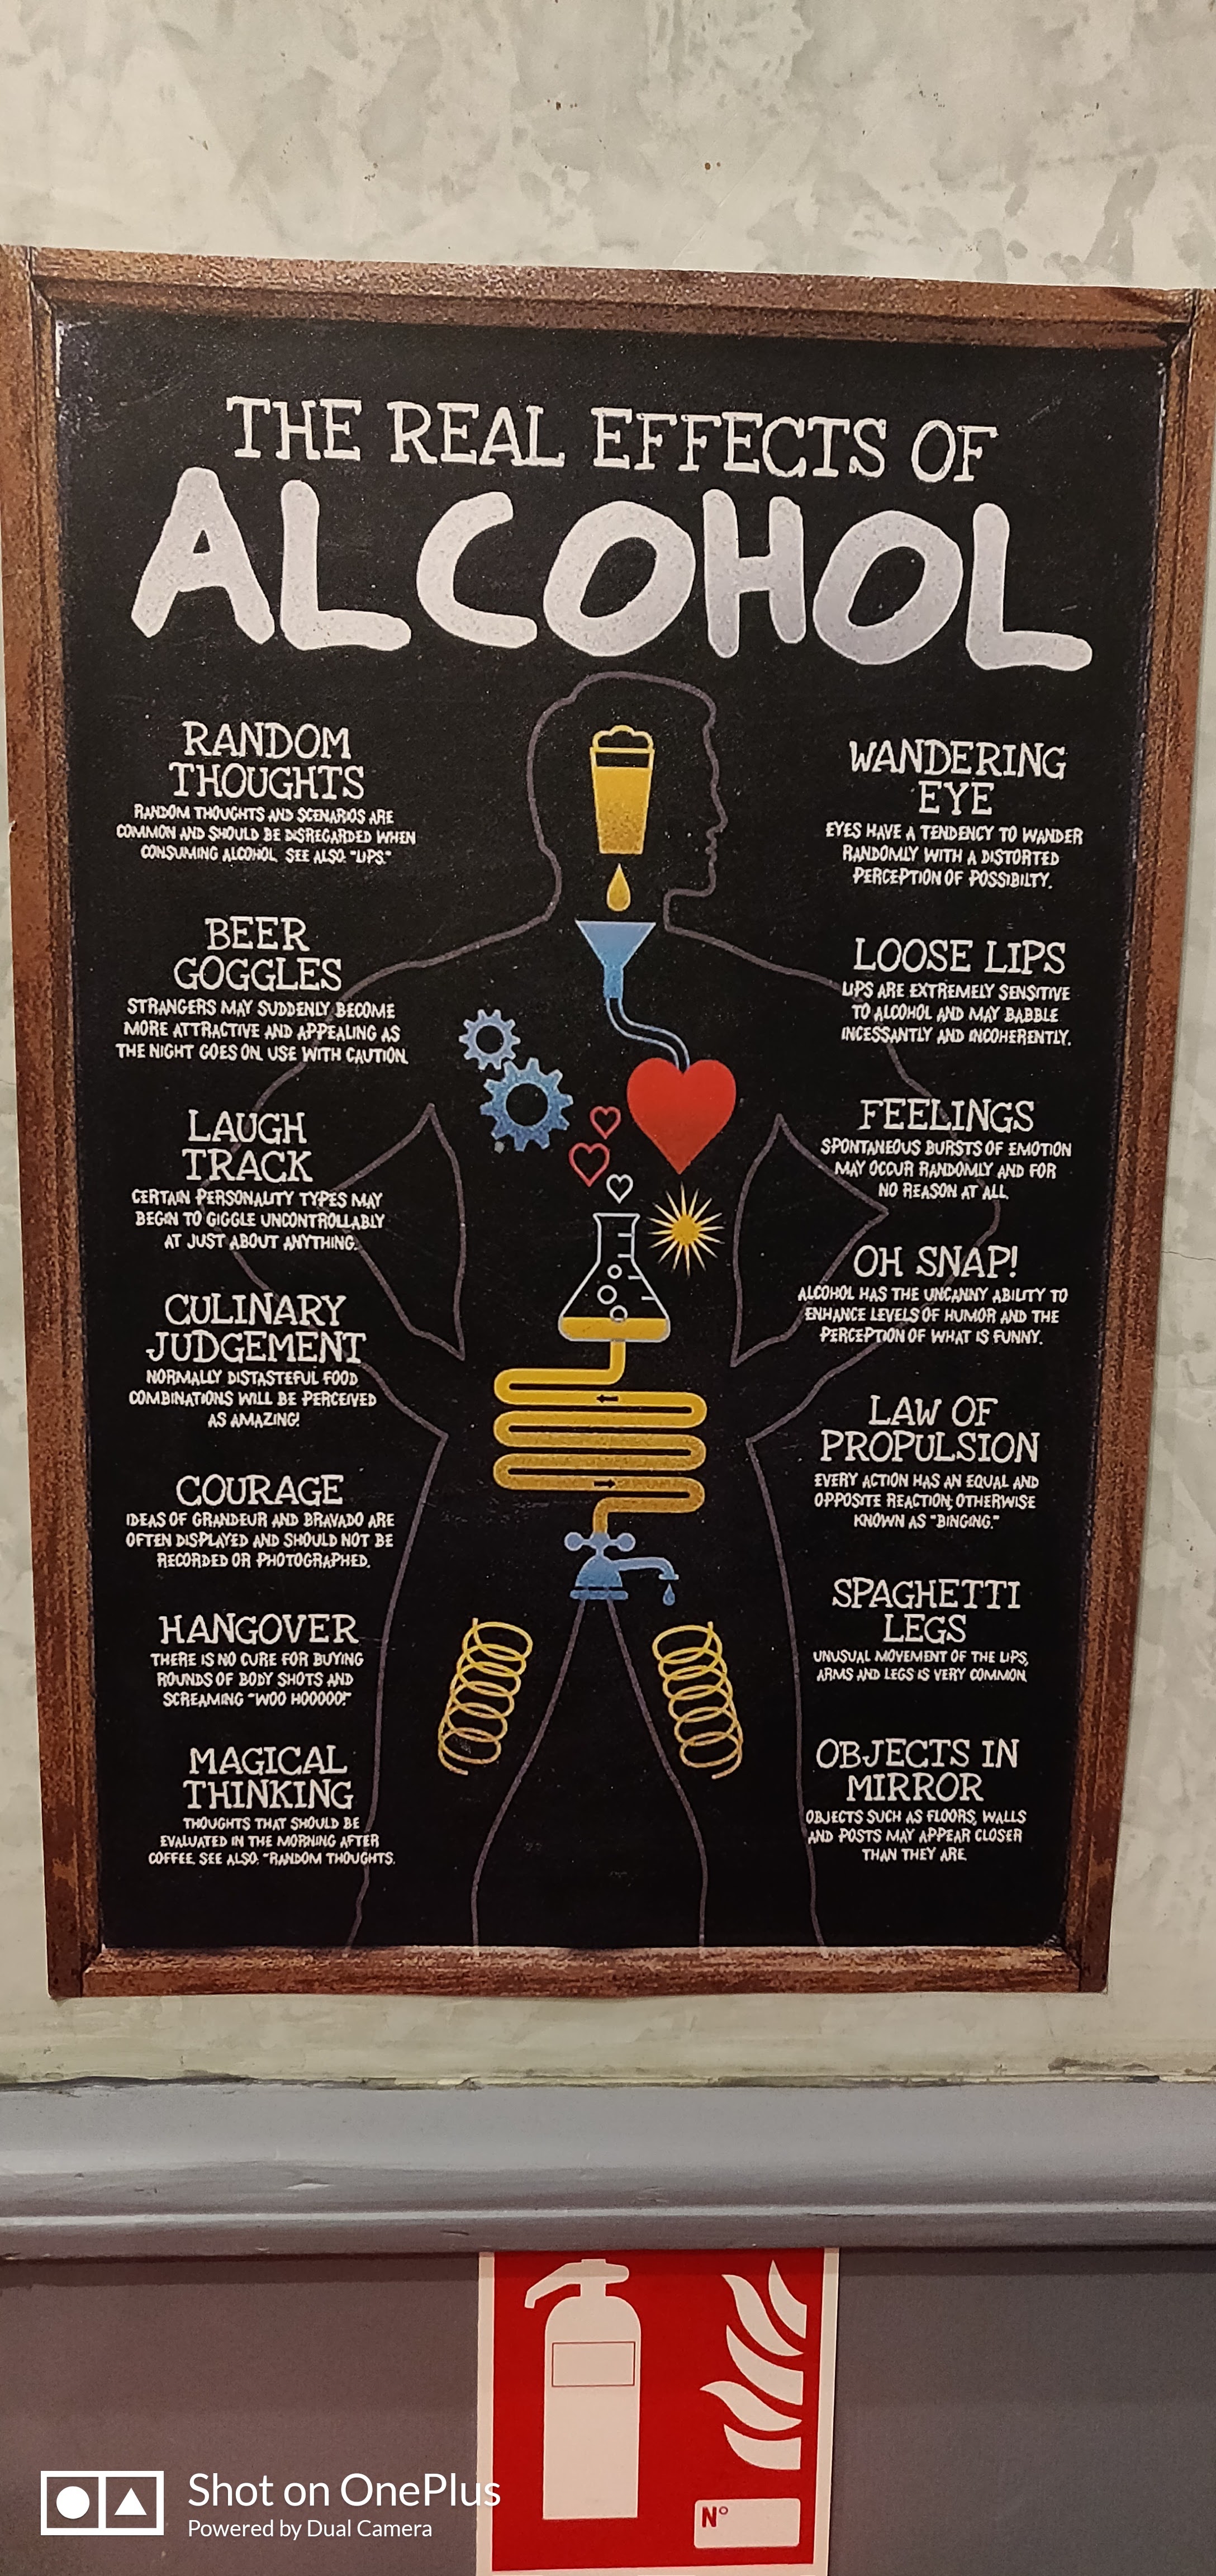 THE REAL EFFECTS OF
ALCOHOL
RANDOM
THOUGHTS
RANDOM THOUGHTS AND SCENARIOS ARE
COMMON AND SHOULD BE DISREGARDED WHEN
CONSUMING ALCOHOL. SEE ALSO: "LIPS."
BEER
GOGGLES
STRANGERS MAY SUDDENLY BECOME
MORE ATTRACTIVE AND APPEALING AS
THE NIGHT GOES ON. USE WITH CAUTION.
LAUGH
TRACK
CERTAIN PERSONALITY TYPES MAY
BEGIN TO GIGGLE UNCONTROLLABLY
AT JUST ABOUT ANYTHING.
CULINARY
JUDGEMENT
NORMALLY DISTASTEFUL FOOD
COMBINATIONS WILL BE PERCEIVED
AS AMAZING!
COURAGE
IDEAS OF GRANDEUR AND BRAVADO ARE
OFTEN DISPLAYED AND SHOULD NOT BE
RECORDED OR PHOTOGRAPHED.
HANGOVER
THERE IS NO CURE FOR BUYING
ROUNDS OF BODY SHOTS AND
SCREAMING "WOO HOOOOO!"
MAGICAL
THINKING
THOUGHTS THAT SHOULD BE
EVALUATED IN THE MORNING AFTER
COFFEE. SEE ALSO: "RANDOM THOUGHTS.
WANDERING
EYE
EYES HAVE A TENDENCY TO WANDER
RANDOMLY WITH A DISTORTED
PERCEPTION OF POSSIBILTY.
LOOSE LIPS
LIPS ARE EXTREMELY SENSITIVE
TO ALCOHOL AND MAY BABBLE
INCESSANTLY AND INCOHERENTLY.
FEELINGS
SPONTANEOUS BURSTS OF EMOTION
MAY OCCUR RANDOMLY AND FOR
NO REASON AT ALL.
OH SNAP!
ALCOHOL HAS THE UNCANNY ABILITY TO
ENHANCE LEVELS OF HUMOR AND THE
PERCEPTION OF WHAT IS FUNNY.
LAW OF
PROPULSION
EVERY ACTION HAS AN EQUAL AND
OPPOSITE REACTION; OTHERWISE
KNOWN AS "BINGING."
SPAGHETTI
LEGS
UNUSUAL MOVEMENT OF THE LIPS,
ARMS AND LEGS IS VERY COMMON.
OBJECTS IN
MIRROR
OBJECTS SUCH AS FLOORS, WALLS
AND POSTS MAY APPEAR CLOSER
THAN THEY ARE.
N°
Shot on OnePlus
Powered by Dual Camera